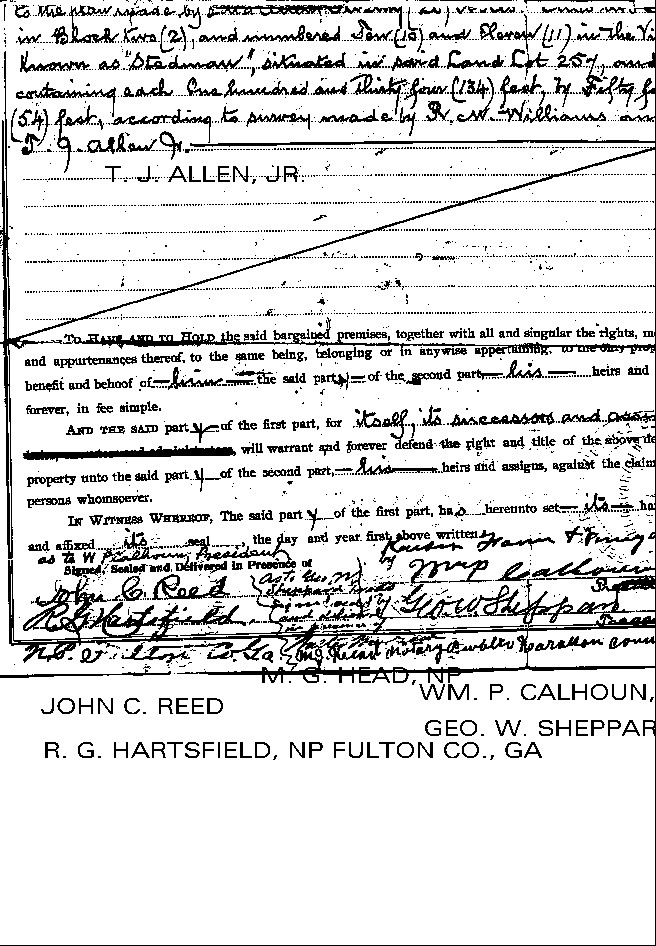 to the plan made by
in Block two (2), and numbered Ten (10) and Eleven (11) in the
Known as "Stedman", situated in said Land Lot 257, and
containing each One hundred and Thirty four (134) feet, by Fifty
(54) feet, according to survey made by R. W. Williams an
T. J. Allen Jr.
T. J. ALLEN, JR.
TO HAVE AND TO HOLD the said bargained premises, together with all and singular the rights,
and appurtenances thereof, to the same being, belonging or in anywise appertaining, to the only
benefit and behoof of him the said party of the second part, his heirs and
forever, in fee simple.
AND THE SAID part y of the first part, for itself, its successors and
will warrant and forever defend the right and title of the above
property unto the said part y of the second part, his heirs and assigns, against the claim
persons whomsoever.
IN WITNESS WHEREOF, The said part y of the first part, has hereunto set its ha
and affixed its seal, the day and year first above written.
as to W P Calhoun, President
Signed, Sealed and Delivered in Presence of
by W P Calhoun
John C. Reed
R. G. Hartsfield
Geo W Sheppar
N.P. Fulton Co. Ga
M G Head Notary Public Haralson coun
M. G. HEAD, NP
WM. P. CALHOUN,
JOHN C. REED
GEO. W. SHEPPAR
R. G. HARTSFIELD, NP FULTON CO., GA